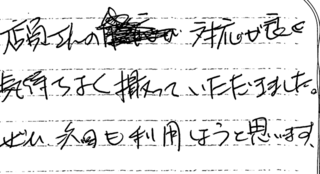 店員さんの対応が良く
気持ちよく撮っていただきました。
ぜひ次回も利用しようと思います